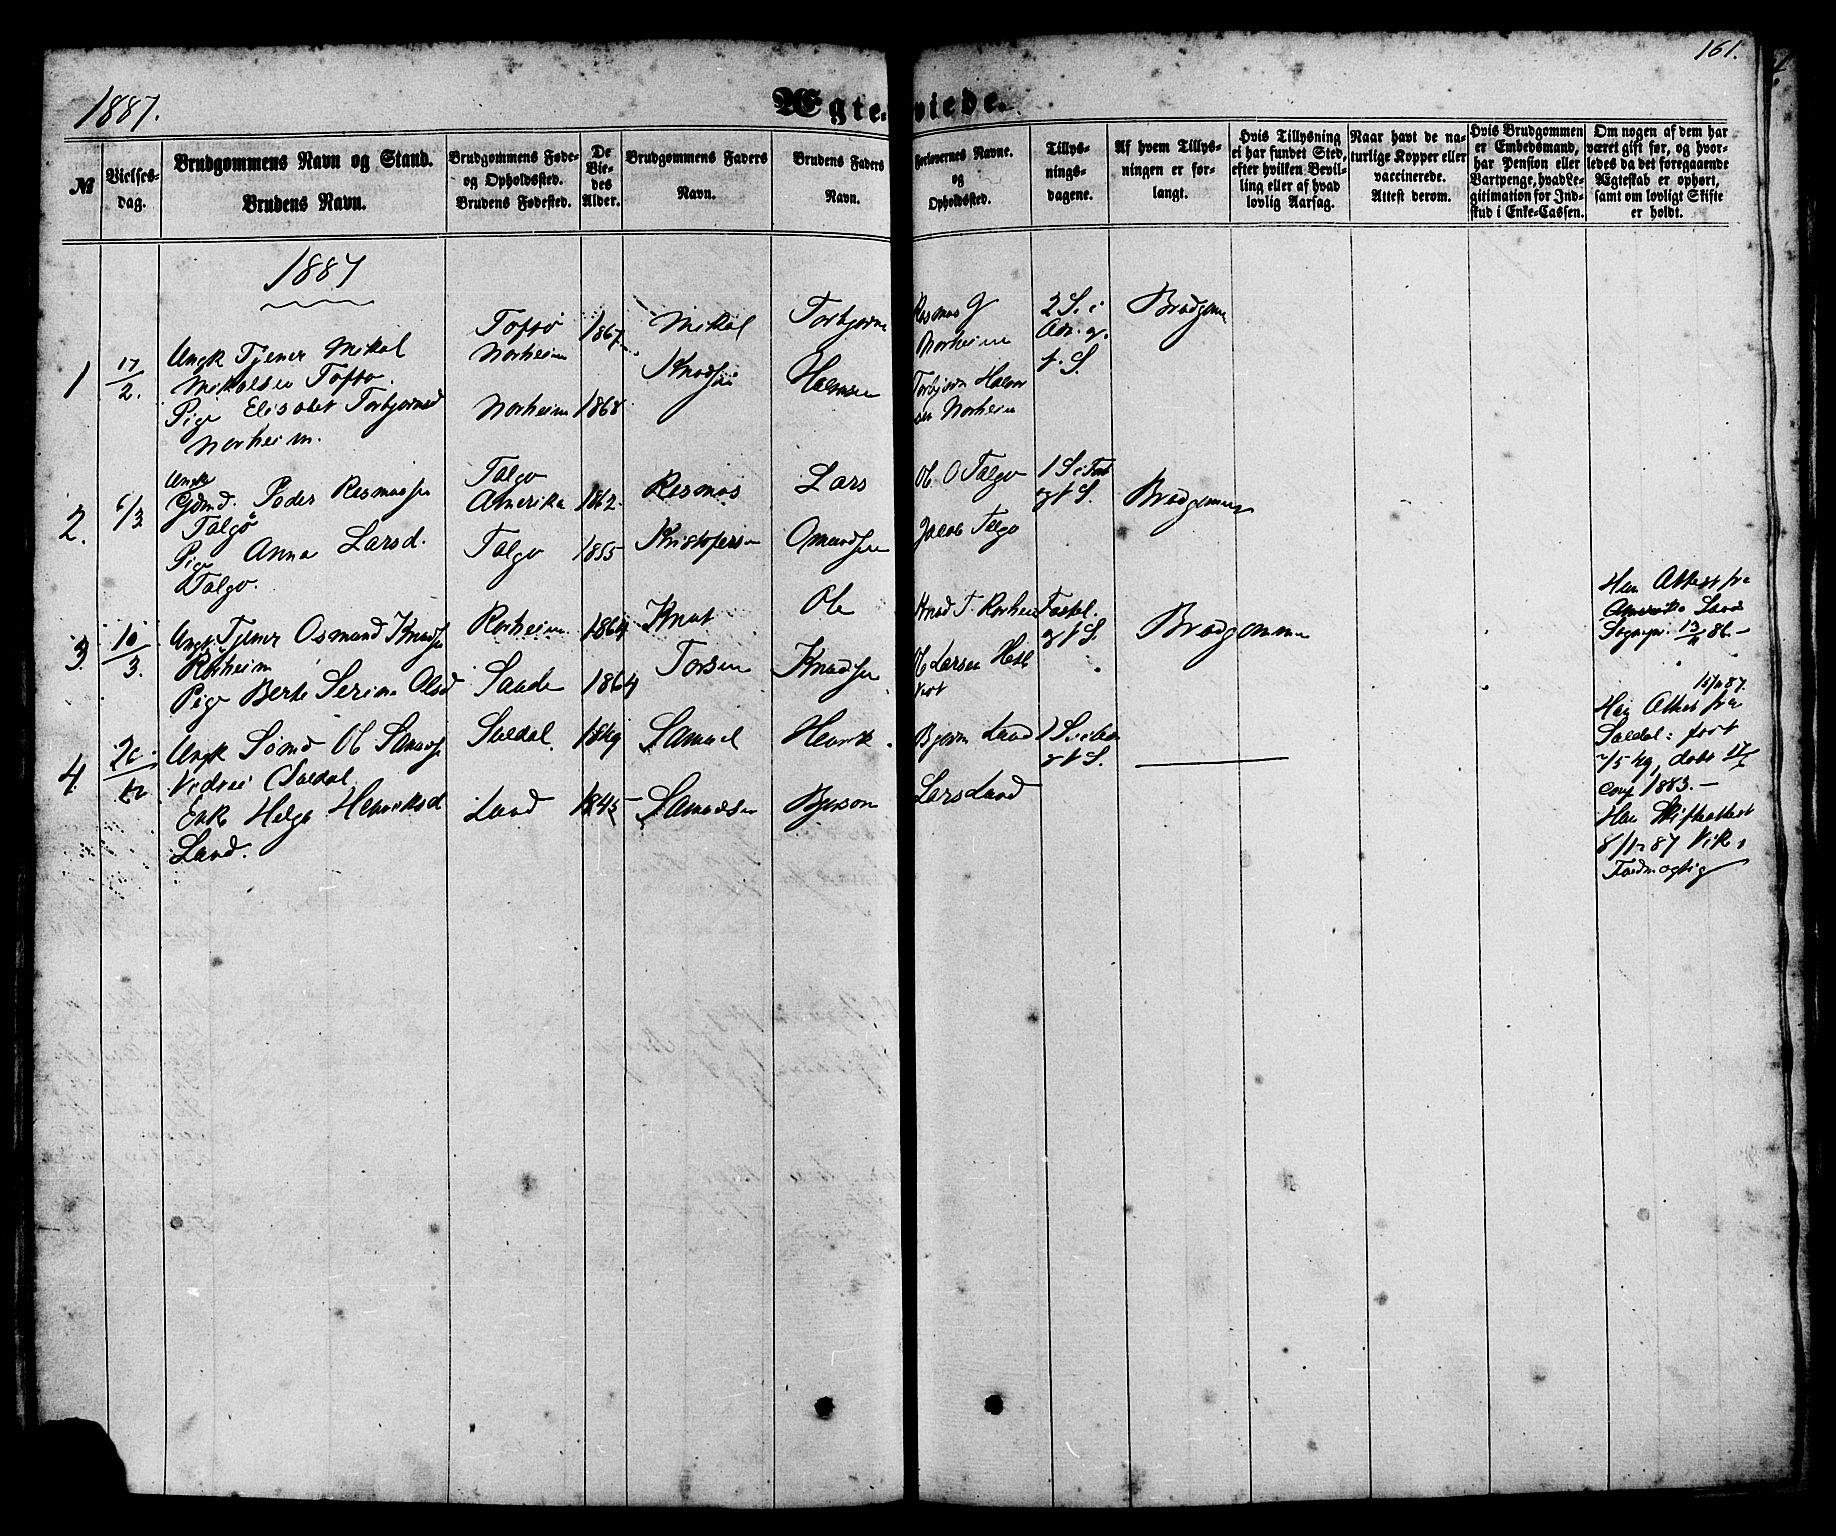 161.
1887.
Ægteviede.
№
Vielses-
dag.
Brudgommens Navn og Stand.
Brudens Navn.
Brudgommens Føde-
og Opholdssted.
Brudens Fødested.
De
Vie-
des
Alder.
Brudgommens Faders
Navn.
Brudens Faders
Navn.
Forlovernes Navne.
og
Opholdssted.
Tillys-
nings-
dagene.
Af hvem Tillys-
ningen er for-
langt.
Hvis Tillysning
ei har fundet Sted,
efter hvilken Bevil-
ling eller af hvad
lovlig Aarsag.
Naar havt de na-
turlige Kopper eller
vaccinerede.
Attest derom.
Hvis Brudgommen
er Embedsmand,
har Pension eller
Vartpenge, hvad Le-
gitimation for Ind-
skud i Enke-Cassen.
Om nogen af dem har
været gift før, og hvor-
ledes da det foregaaende
Ægteskab er ophørt,
samt om lovligt Skifte
er holdt.
1887
1
17/2.
Ungk Tjener Mikal
Mikalsen Toftø.
Pige Elisabet Torbjørnsd
Norheim.
Toftø
Norheim
Norheim
1867
1868
Mikal
Knudsen
Torbjørn
Halvorsen
Rasmus G
Norheim
Torbjørn Halvor
sen Norheim
2 S. i
Brudgom
2.
6/3
Ungk
Gdmd. Peder Rasmussen
Talgø
Pige Anna Larsd.
Talgø.
Talgø
Amerika
Talgø
1862
1855
Rasmus
Kristofersen
Lars
Omundsen
Ole O Talgø
Jacob Talgø
1 S. i Fast
og f S.
Brudgommen
3.
10/3.
Ungk Tjener Osmund Knudsen
Rørheim
Pige Berte Serine Olsd
Rørheim
Sande
1864
1864
Knut
Torsen
Ole
Knudsen
Knud T. Rørheim
Ole Larsen Hesl
vist
Fastel.
og f S.
Brudgommen
Han Attest fra
Amerika Lands
SogNpr. 13/11 86.–
4.
Ungk Sømd Ole Samuels
Suldal
Enke Helga Henriksd
Land.
Suldal.
Land
1849
1845
Samuel
Samuelsen
Henrik
Bjørson
Bjørn Land
Lars Land
15/11 87.
Han Attest fra
Suldal: født
døbt
conf 1883.–
Hun Skifteattest
8/11 87 Vik,
Fuldmægtig